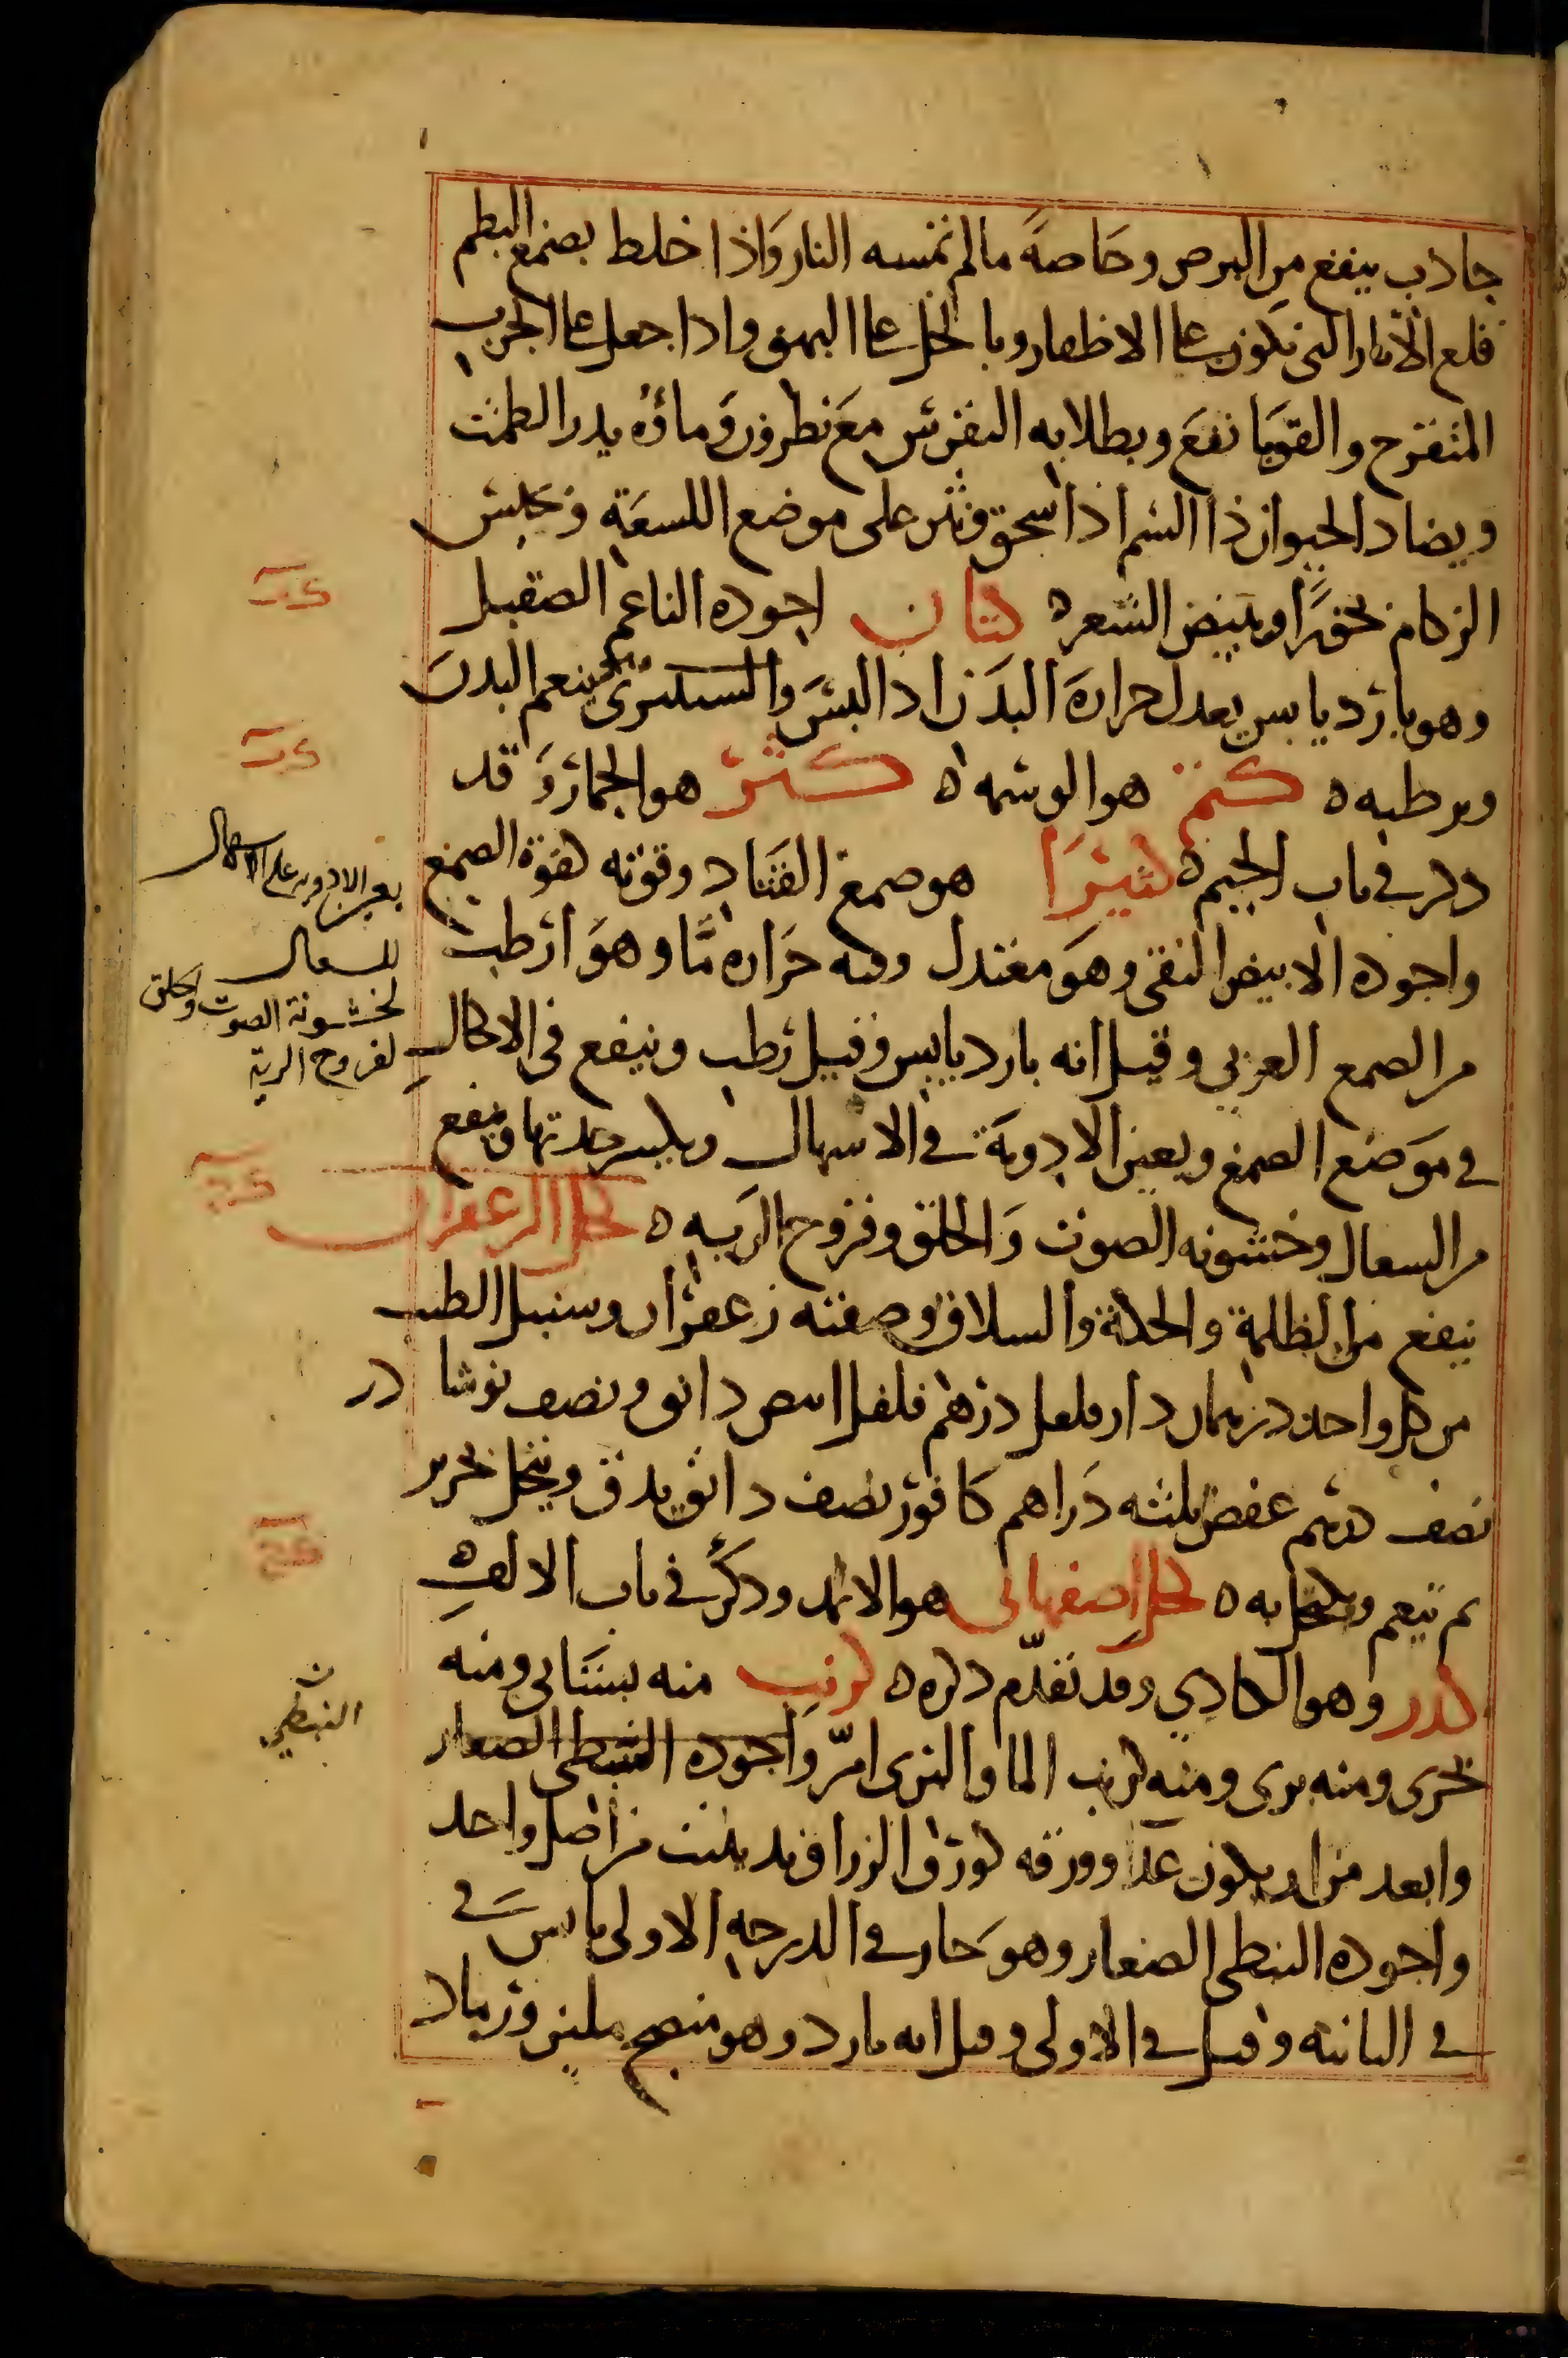 جاذب ينفع من البرص وخاصةً ما لم تمسه النار وَاذا خلط بصمغ البطم
قلع الآثار التي تكون على الاظفار وبالخل على البهق واذا جعل على الجرب
المتقرح والقوبا نفعَ ويطلا به النقرس معَ نطرون وَماؤه يدر الطمث
ويضاد الحيوان ذا السم اذا سحق ونثر على موضع اللسعَة وَيحبس
الزكام بخورًا ويبيض الشعر ه كتان اجوده الناعم الصقيل
وهو بارد يابس يعدل حرارة البدن اذا لبسَ وَالتستري ينعم البدن
ويرطبه ه كتم هو الوشمه ه كثر هو الجمار وَقد
ذكر في باب الجيم ه كثيرَا هو صمغ القتاد وقوته كقوة الصمغ
واجوده الابيض النقي وهوَ معتدل وفيه حَراره مَّا وهوَ ارطب
من الصمغ العربي وقيل انه بارد يابس وقيل رَطب وينفع في الاكحال
في مَوضع الصمغ ويعين الادويَة في الاسهال ويكسر حدتها وينفع
من السعال وخشونه الصوت وَالحلق وقروح الريَه ه كحل الزعفران
ينفع من الظلمة والحكة والسلاق وصفته زعفران وسنبل الطيب
من كل واحد درهمان دار فلفل درهم فلفل ابيض دانق ونصف نوشادر
نصف درهم عفص ثلثه دَراهم كافور نصف دانق يدق وينخل بحرير
ثم ينعم ويكتحل به ه كحل اصفهاني هو الاثمد وذكرَ في باب الالف ه
كدر وهو الكادي وقد تقدّم ذكره ه كرنب منه بستَاني ومنه
بحري ومنه بري ومنه كرنب الما والبري امرّ وَاجوده النبطي الصغار
وابعد من ان يكون غذا وورقه كورق الزراوند ينبت من اصل واحد
واجوده النبطي الصغار وهوَ حار في الدرجه الاولى يابس في
في الثانيه وقيل في الاولى وقيل انه بارد وهو منضج ملين ورماد
يعين الادويه على الاسهال
للسعال
لخشونة الصوت والحلق
لقروح الرية
النبطي